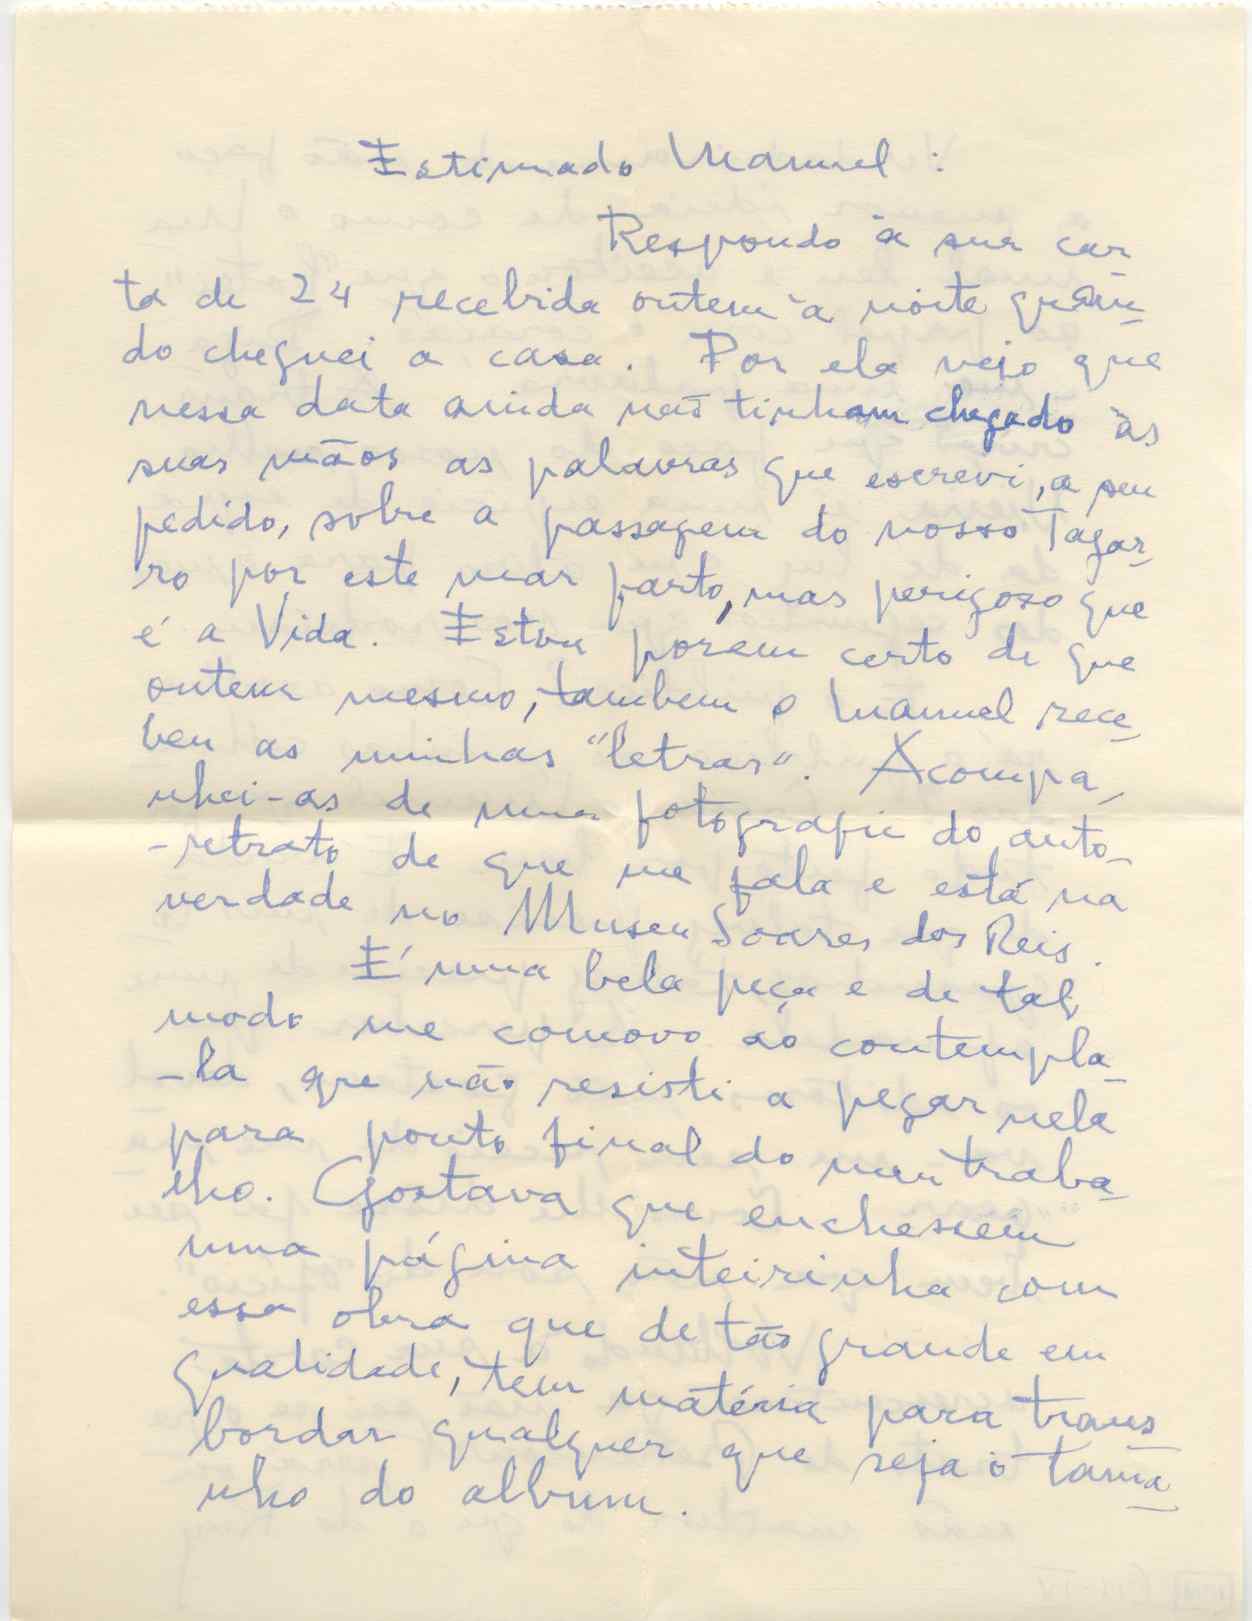 Estimado Manuel:
Respondo à sua car-
ta de 24 recebida ontem à noite quan-
do cheguei a casa. Por ela vejo que
nessa data ainda não tinham chegado às
suas mãos as palavras que escrevi, a seu
pedido, sobre a passagem do nosso Tagar-
ro por este mar parto, mas perigoso que
é a Vida. Estou porem certo de que
ontem mesmo, tambem o Manuel rece-
beu as minhas "letras". Acompa-
nhei-as de uma fotografia do auto-
-retrato de que me fala e está na
verdade no Museu Soares dos Reis.
É uma bela peça e de tal
modo me comovo ao contempla-
-la que não resisti a pegar nela
para ponto final do meu traba-
lho. Gostava que enchessem
uma página inteirinha com
essa obra que de tão grande em
qualidade, tem matéria para trans-
bordar qualquer que seja o tama-
nho do album.